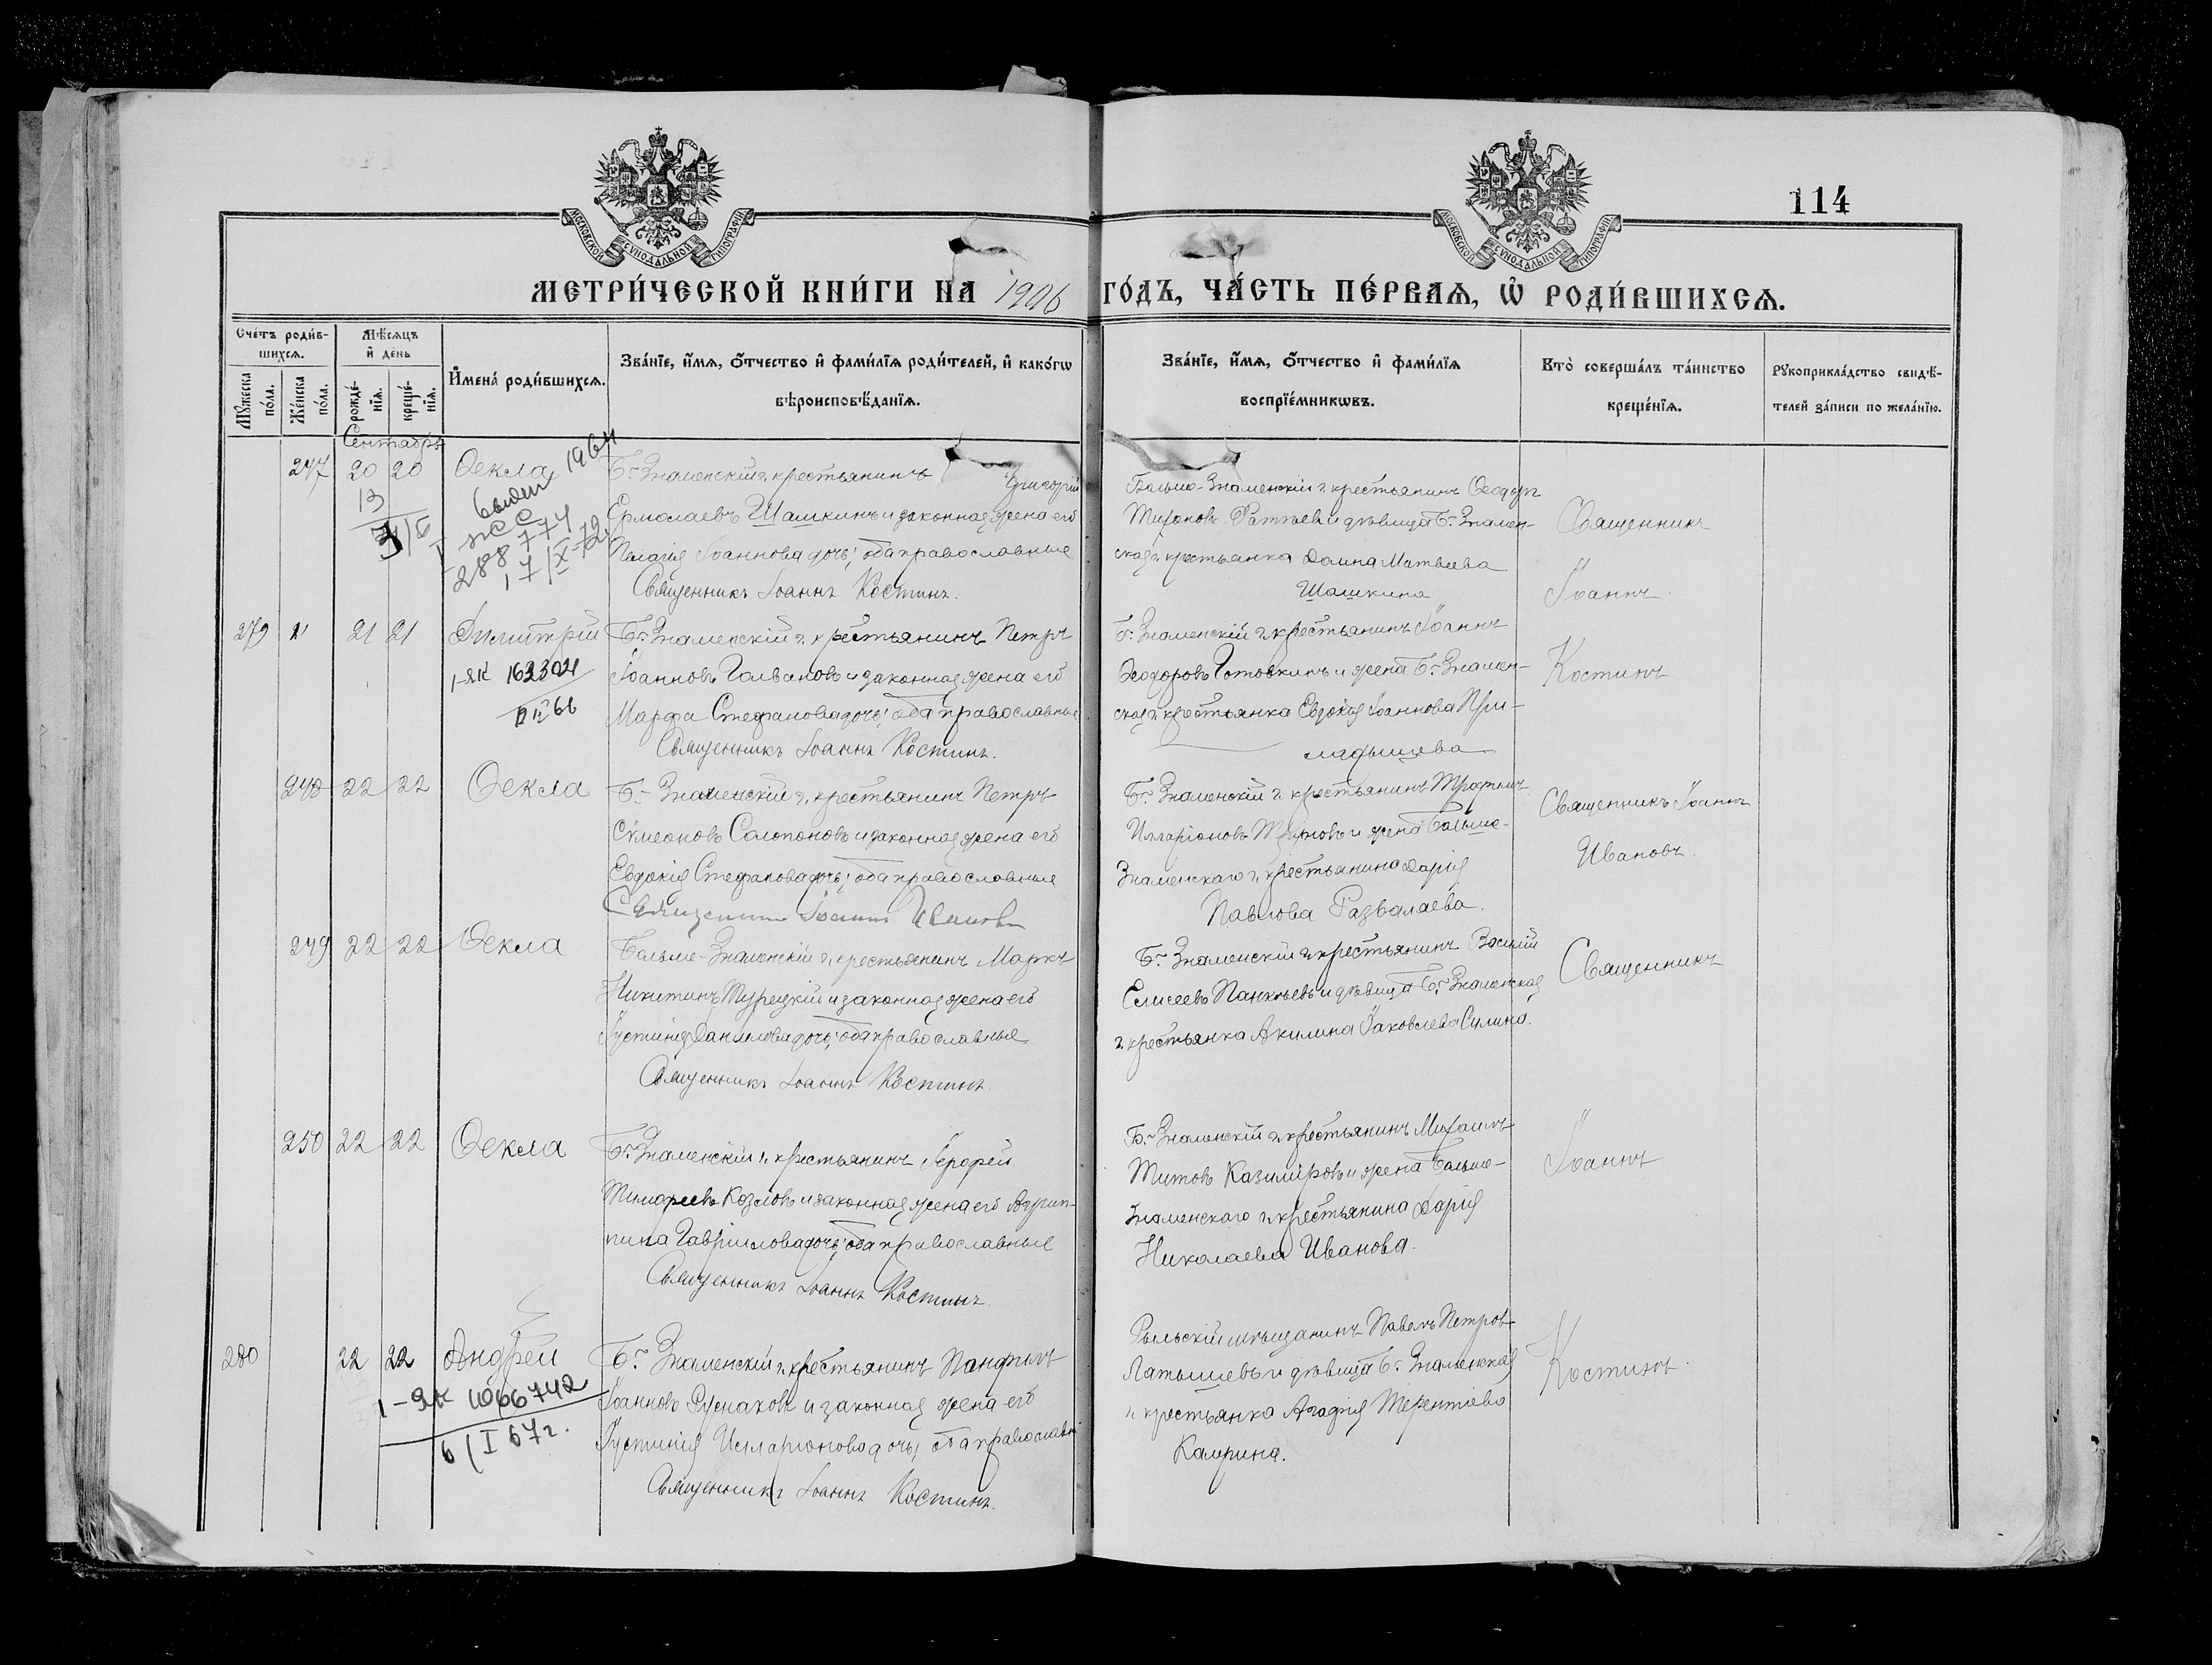 114
МОСКОВСКОЙ СУНОДАЛЬНОЙ ТИПОГРАФІИ
МОСКОВСКОЙ СУНОДАЛЬНОЙ ТИПОГРАФІИ
МЕТРИ́ЧЕСКОЙ КНИ́ГИ НА 1906 ГО́ДЪ, ЧА́СТЬ ПЕ́РВАѦ, Ѡ РОДИ́ВШИХСѦ.
Сче́тъ роди́в-
шихсѧ.
Мꙋжеска по́ла.
Же́нска по́ла.
Мѣ́сѧцъ
и҆ де́нь
рожде́-
нїѧ.
креще́-
нїѧ.
И҆мена̀ роди́вшихсѧ.
Зва́нїе, и҆́мѧ, ѻ҆́тчество и҆ фами́лїѧ роди́телей, и҆ како́гѡ
вѣроисповѣ́данїѧ.
Зва́нїе, и҆́мѧ, ѻ҆́тчество и҆ фами́лїѧ
воспрїе́мникѡвъ.
Кто̀ соверша́лъ та́инство
креще́нїѧ.
Рꙋкоприкла́дство свидѣ́-
телей за́писи по жела́нїю.
Сентябрь
247 20 20 Ѳекла
1964
Б.-Знаменскій г. крестьянинъ Григорій
Ермолаевъ Шашкинъ и законная жена его
Пелагія Іоаннова дочь; оба православные
Священникъ Іоаннъ Костинъ.
288 774
17/X-72
Больше-Знаменскій г. крестьянинъ Ѳеодоръ
и дѣвица Б.-Знамен-
ская г. крестьянка Матвеева
Шашкина
Священникъ
Іоаннъ
Костинъ
279 21 21 Димитрій
1-ЯК 162304
Б.-Знаменскій г. крестьянинъ Петръ
Іоанновъ Голвановъ и законная жена его
Марфа Стефанова дочь; оба православные
Священникъ Іоаннъ Костинъ.
Б.-Знаменскій г. крестьянинъ Іоаннъ
Ѳеодоровъ Готовкинъ и жена Б.-Знамен-
ская г. крестьянка Евдокія Іоаннова
248 22 22 Ѳекла
Б.-Знаменскій г. крестьянинъ Петръ
Сѵмеоновъ Солопоновъ и законная жена его
Евдокія Стефанова дочь; оба православные
Священникъ Іоаннъ Ивановъ
Б.-Знаменскій г. крестьянинъ Трофимъ
Илларіоновъ и жена Больше-
Знаменскаго г. крестьянина Дарія
Павлова Развалаева.
Священникъ Іоаннъ
Ивановъ.
249 22 22 Ѳекла
Больше-Знаменскій г. крестьянинъ Маркъ
Никитинъ Турецкій и законная жена его
Іустинія Данилова дочь; оба православные
Священникъ Іоаннъ Костинъ.
Б.-Знаменскій г. крестьянинъ Василій
Елисеевъ Панкѣевъ и дѣвица Б.-Знаменская
г. крестьянка Акилина Іаковлева Сулима.
Священникъ
250 22 22 Ѳекла
Б.-Знаменскій г. крестьянинъ Іерофей
Тимофеевъ Козловъ и законная жена его Агрип-
пина Гавріилова дочь; оба православные
Священникъ Іоаннъ Костинъ.
Б.-Знаменскій г. крестьянинъ Михаилъ
Титовъ Казиміровъ и жена Больше-
Знаменскаго г. крестьянина Дарія
Николаева Иванова.
Іоаннъ
280 22 22 Андрей
1-ЯК 1066742
6/I 67г.
Б.-Знаменскій г. крестьянинъ Панфилъ
Іоанновъ Русмаковъ и законная жена его
Іустинія Илларіонова дочь; оба православн
Священникъ Іоаннъ Костинъ.
Рыльскій мѣщанинъ Павелъ Петровъ
Латышевъ и дѣвица Б.-Знаменская
г. крестьянка Агафія Терентіева
Камрина.
Костинъ.